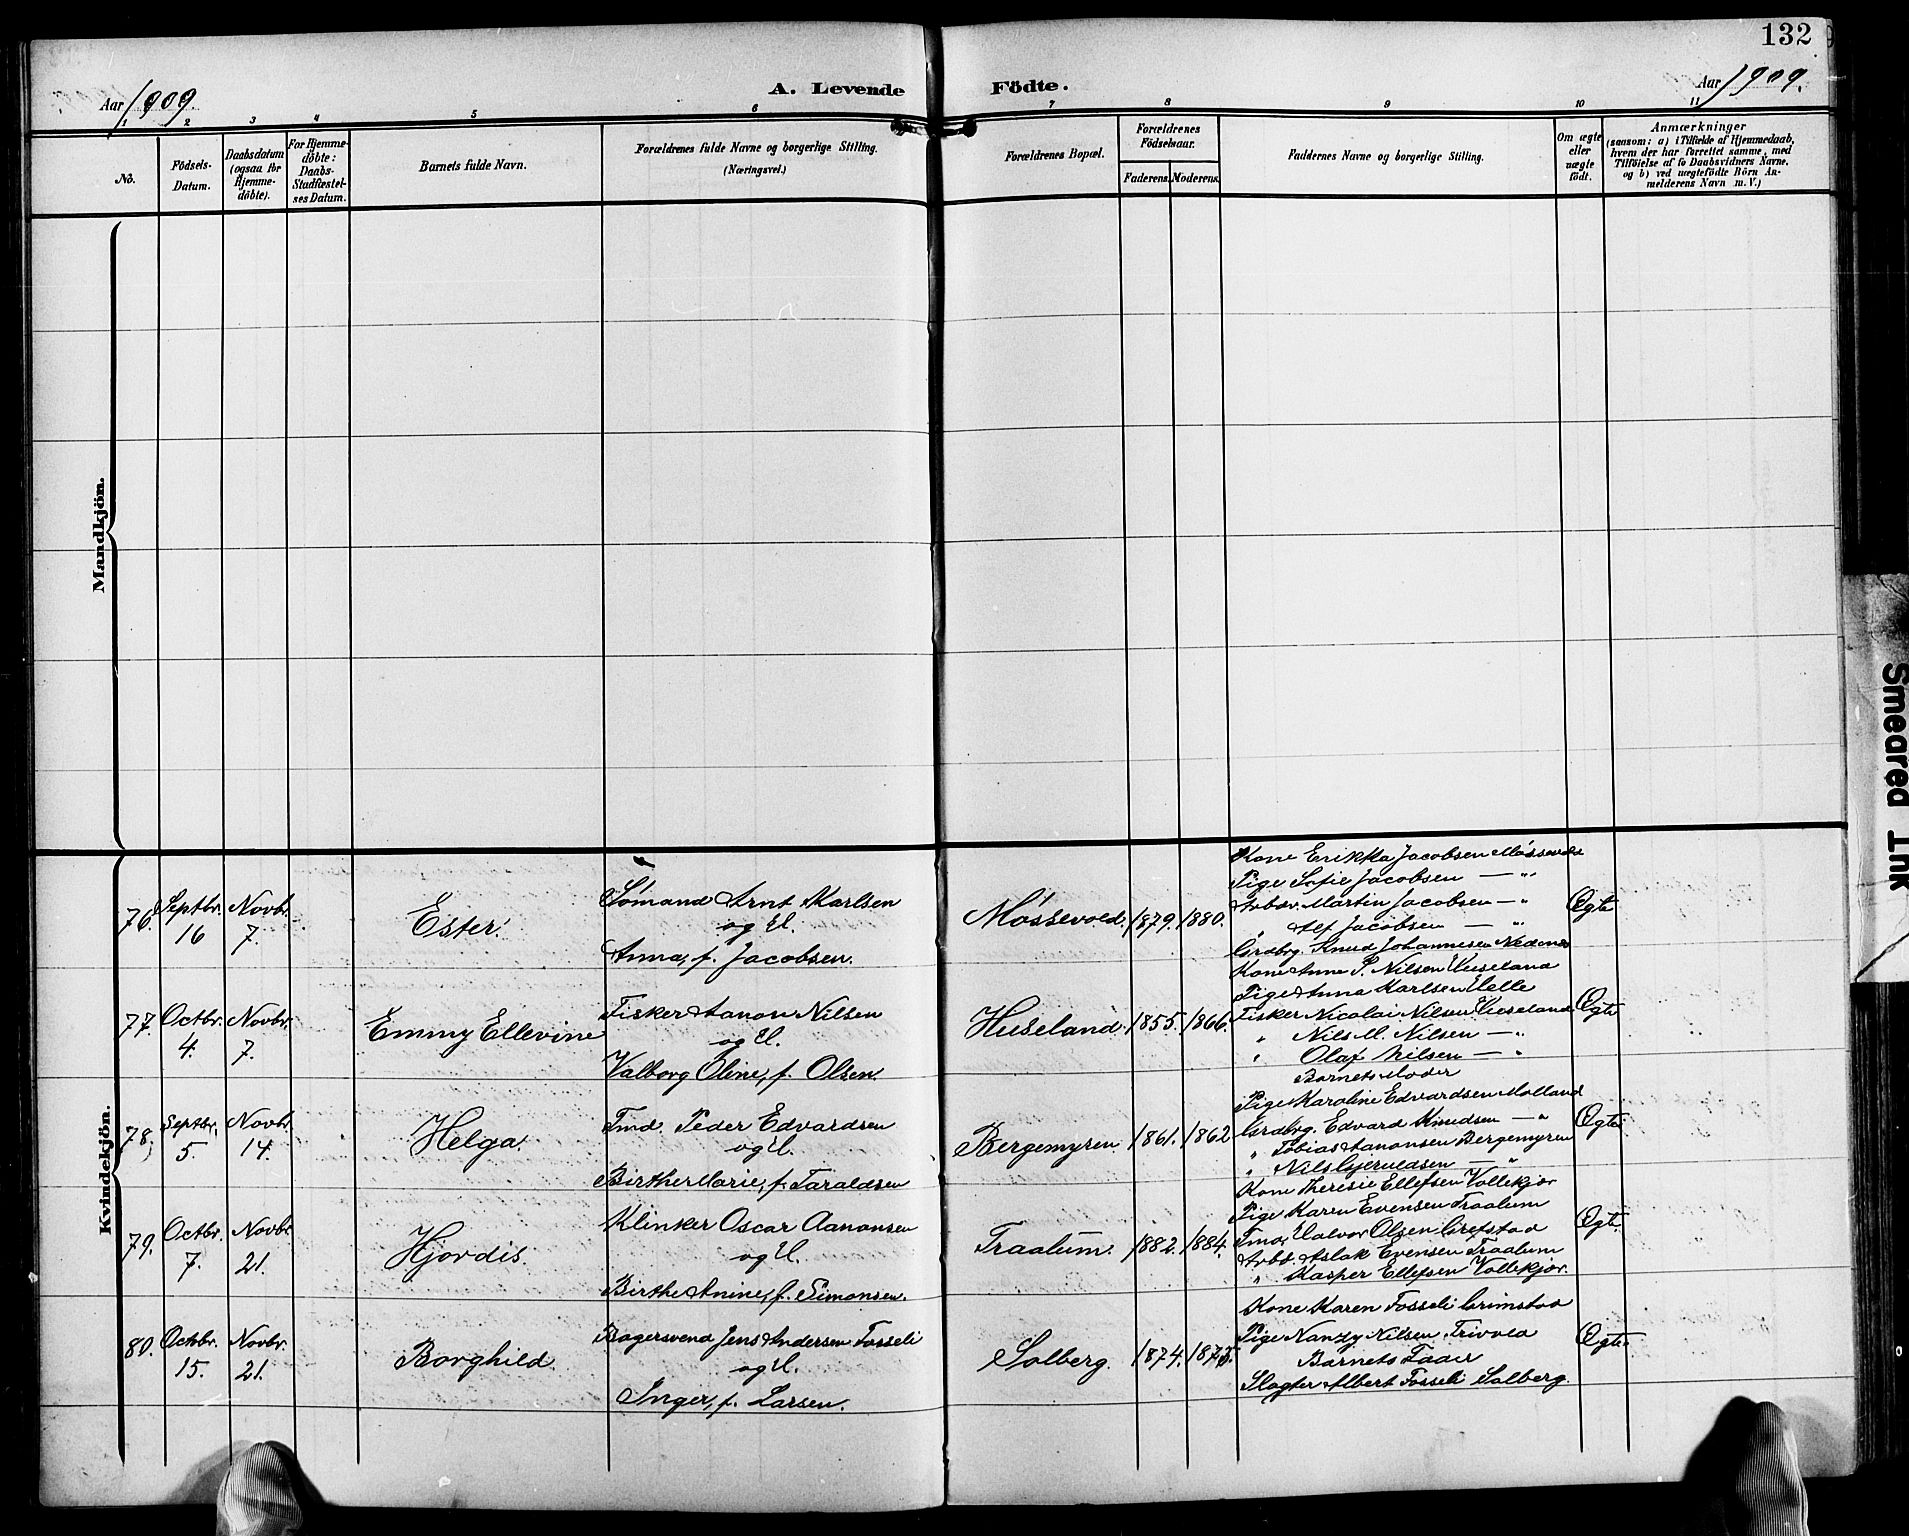 132
Aar 1909.
A. Levende Födte.
Aar 1909.
1 2 3 4 5 6 7 8 9 10 11
No.
Födsels-Datum.
Daabsdatum (ogsaa for Hjemme-döbte).
For Hjemme-döbte: Daabs-Stadfæstel-ses Datum.
Barnets fulde Navn.
Forældrenes fulde Navne og borgerlige Stilling.
(Næringsvei.)
Forældrenes Bopæl.
Forældrenes Födselsaar.
Faderens. Moderens.
Faddernes Navne og borgerlige Stilling.
Om ægte eller uægte födt.
Anmærkninger
(saasom: a) i Tilfælde af Hjemmedaab,
hvem der har forrettet samme, med
Tilföielse af to Daabsvidners Navne,
og b) ved uægtefödte Börn An-
melderens Navn m. V.)
Mandkjön.
Kvindekjön.
76. Septbr. 16 Novbr. 7. Ester.
Sømand Arnt Karlsen
og H.
Anna, f. Jacobsen.
Møssevold. 1879. 1880.
Kone Erikka Jacobsen Møssevold
Pige Sofie Jacobsen — "
Arbdr. Martin Jacobsen — "
" Alf Jacobsen — "
Grdbrg. Knud Johannesen Nedenes
Ægte
77. Octbr. 4. Novbr. 7. Emmy Ellevine
Fisker Aanon Nilsen
og H.
Valborg Oline, f. Olsen.
Huseland. 1855. 1866.
Kone Anne P. Nilsen Huseland
Pige Anna Karlsen Helle
Fisker Nicolai Nilsen Huseland
" Nils M. Nilsen — "
" Olaf Nilsen — "
Barnets Moder
Ægte
78. Septbr. 5. Novbr. 14. Helga.
Tmd. Peder Edvardsen
og H.
Birthe Marie, f. Taraldsen
Bergemyren. 1861. 1862
Pige Karoline Edvardsen Molland
Grdbrg. Edvard Knudsen — "
" Tobias Aanonsen Bergemyren
" Nils Gjeruldsen — "
Ægte
79. Octbr. 7. Novbr. 21. Hjordis.
Klinker Oscar Aanonsen
og H.
Birthe Anine, f. Simonsen.
Traalum. 1882. 1884.
Kone Theresie Ellefsen Vollekjær
Pige Karen Evensen Traalum
Tmd. Halvor Olsen Grefstad
Arbd. Aslak Evensen Traalum
" Kasper Ellefsen Vollekjær.
Ægte
80. Octbr. 15. Novbr. 21. Borghild.
Bagersvend Jens Andersen Fosseli
og H.
Inger, f. Larsen.
Solberg. 1874. 1875.
Kone Karen Fosseli Grimstad
Pige Nanzy Nilsen, Trivold
Barnets Fader
Slagter Albert Fosseli Solberg.
Ægte.
Smeared Ink